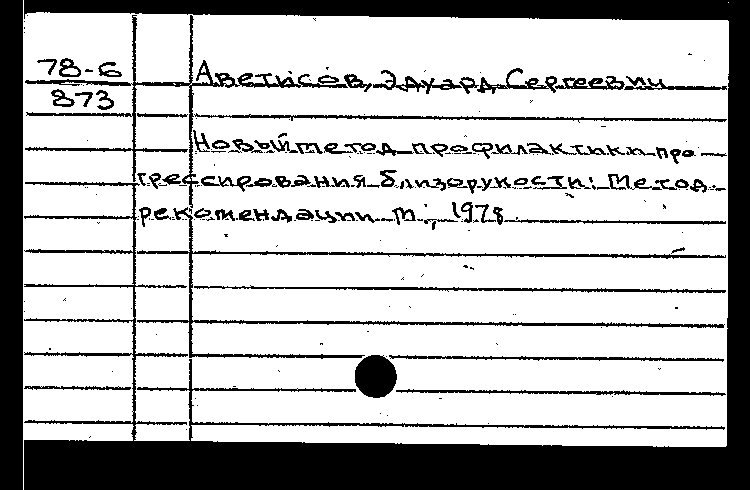 78-6
873
Аветисов, Эдуард Сергеевич
Новый метод профилактики про-
грессирования близорукости: Метод.
рекомендации М., 1978